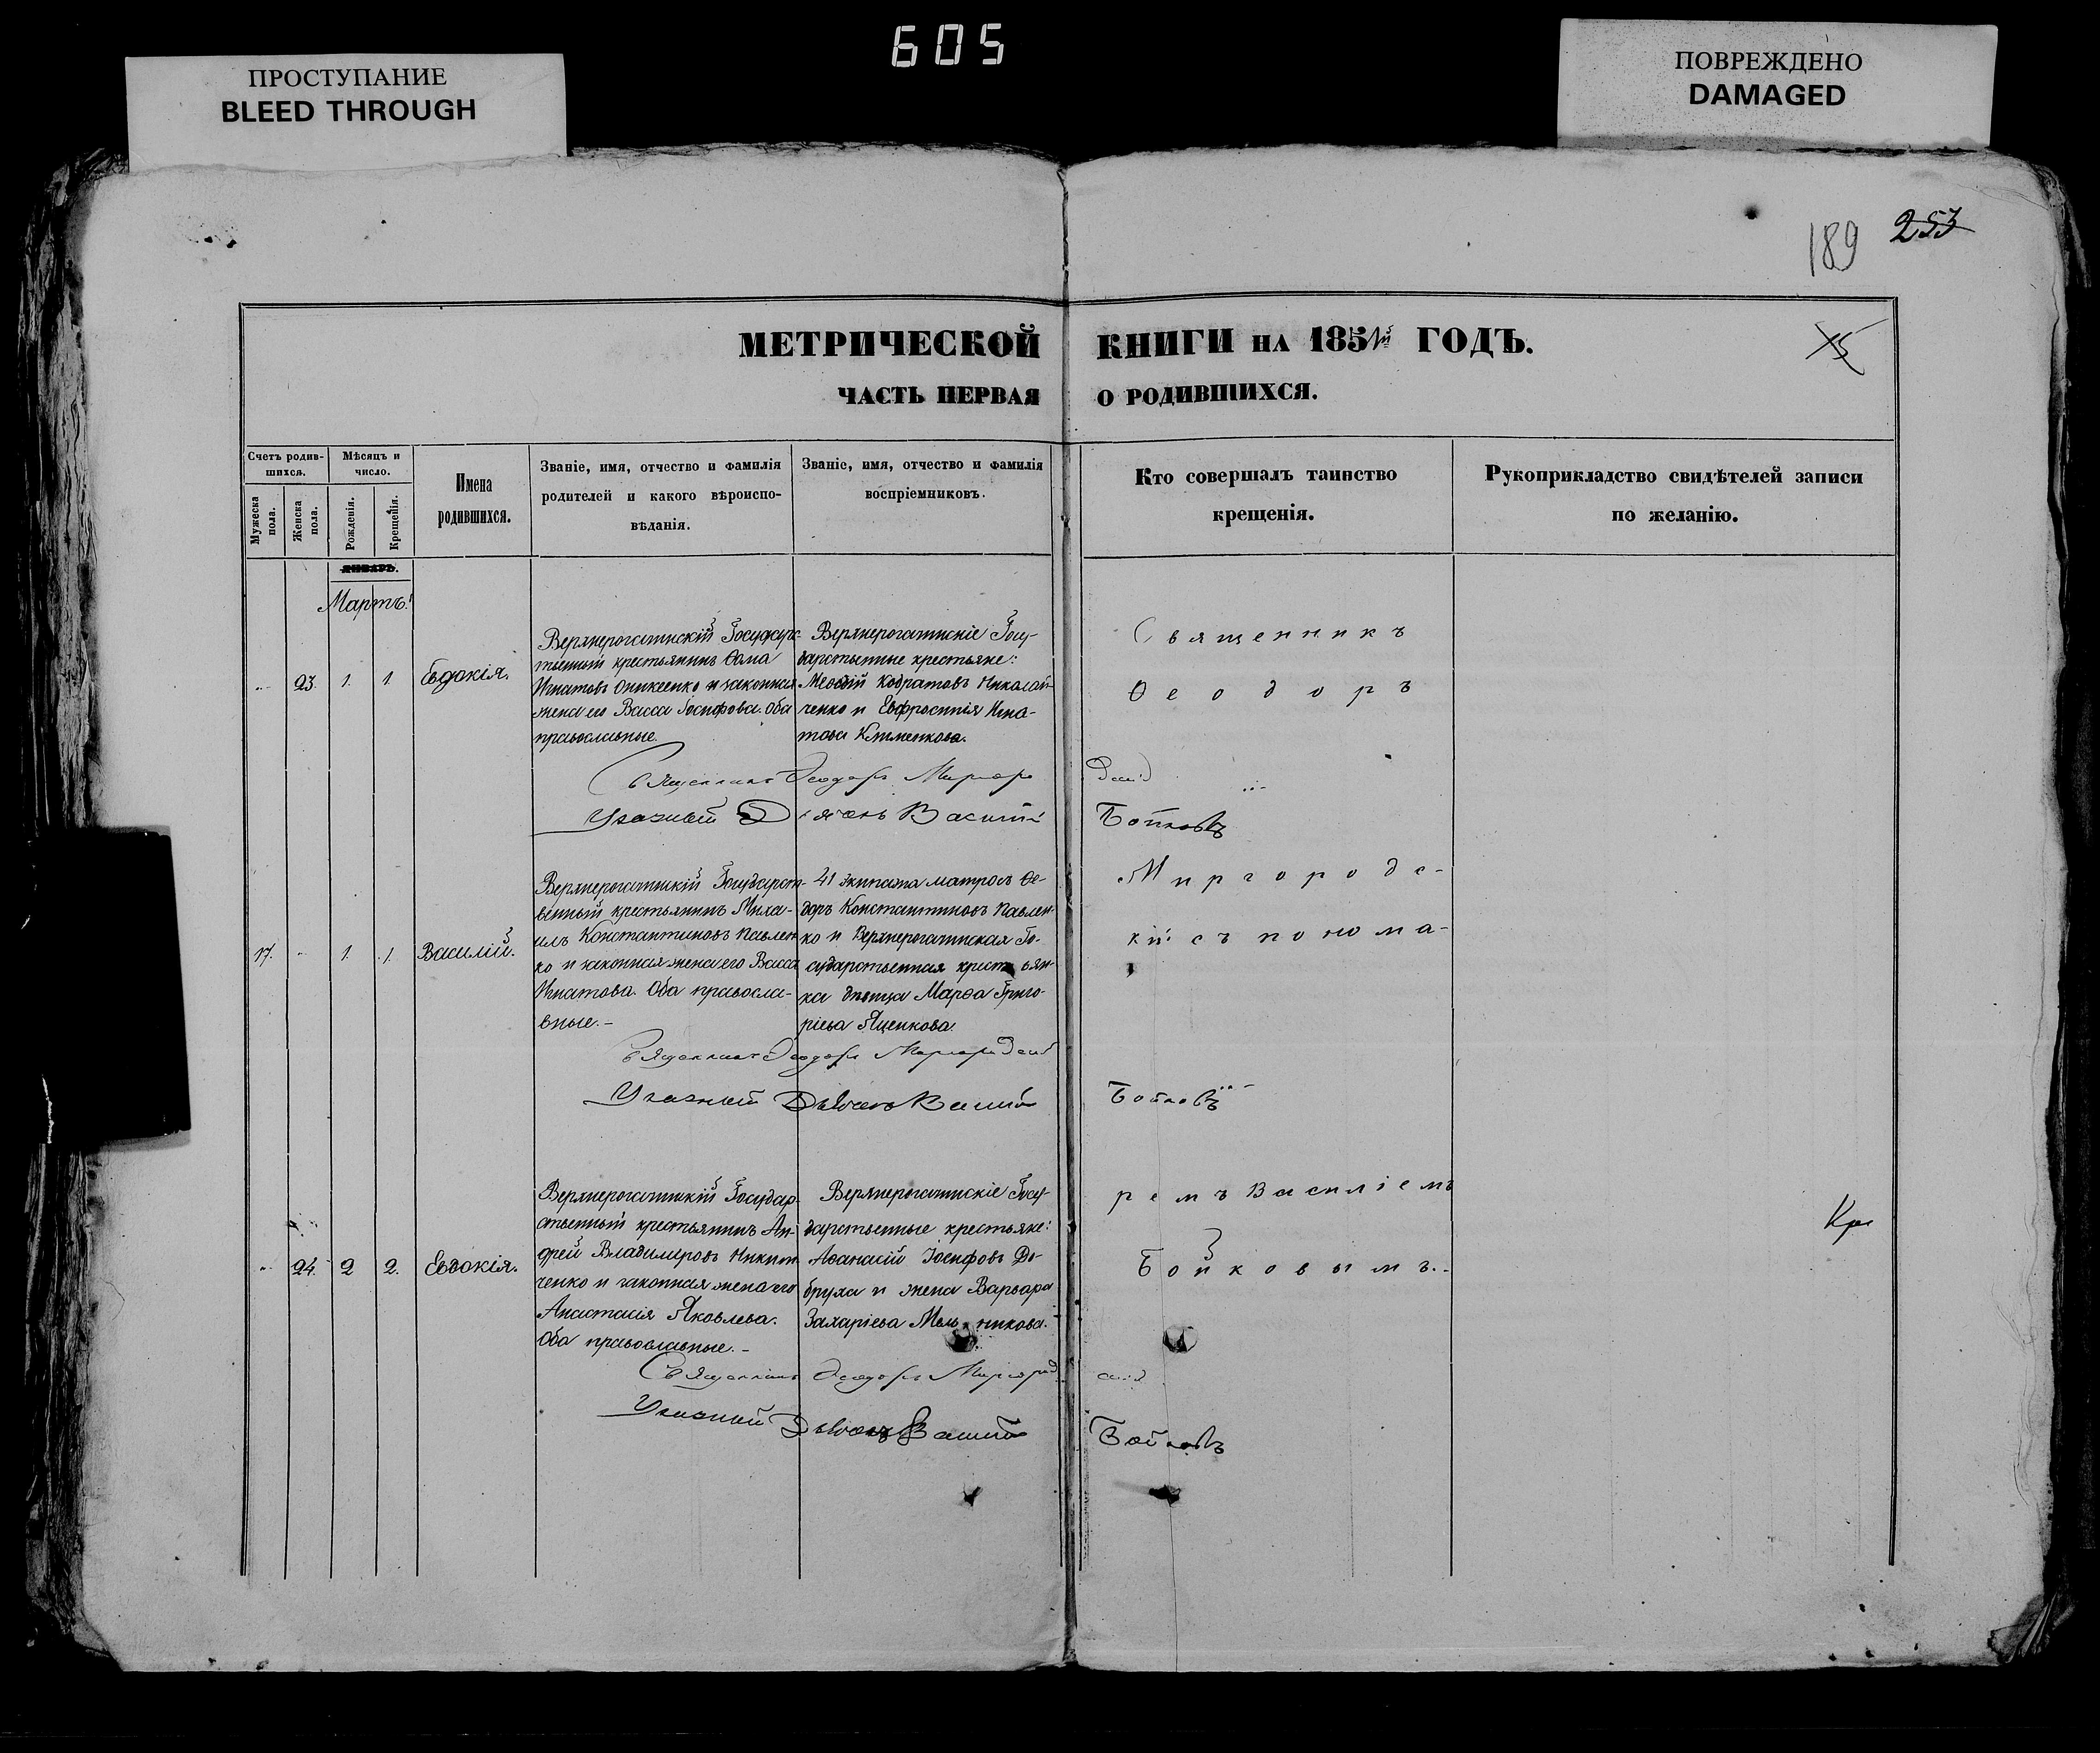 605
ПРОСТУПАНИЕ
BLEED THROUGH
ПОВРЕЖДЕНО
DAMAGED
189 253
МЕТРИЧЕСКОЙ КНИГИ НА 185 ГОДЪ.
ЧАСТЬ ПЕРВАЯ О РОДИВШИХСЯ.
Счетъ родив-
шихся.
Мужеска пола.
Женска пола.
Мѣсяцъ и
число.
Рожденія.
Крещенія.
Имена
родившихся.
Званіе, имя, отчество и фамилія
родителей и какого вѣроиспо-
вѣданія.
Званіе, имя, отчество и фамилія
воспріемниковъ.
Кто совершалъ таинство
крещенія.
Рукоприкладство свидѣтелей записи
по желанію.
ЯНВАРЬ.
Мартъ.
23. 1. 1. Евдокія.
Верхнерогачинскій Государс-
твенный крестьянинъ Ѳома
Игнатовъ Оникеенко и законная
жена его Васса Іосифова. Оба
православные.
Верхнерогачинскіе Госу-
дарственные крестьяне:
Меѳодій Кодратовъ Николай-
ченко и Евфросинія Игна-
това Клименкова.
Священникъ Ѳеодоръ Миргородскій
Указный Дьячокъ Василій Бойковъ
17. 1. 1. Василій.
Верхнерогачинскій Государст-
венный крестьянинъ Миха-
илъ Константиновъ Павлен
ко и законная жена его Васса
Игнатова. Оба правосла-
вные.-
41 экипажа матросъ Ѳе-
доръ Константиновъ Павлен-
ко и Верхнерогачинская Го-
сударственная крестьян-
ка девица Марѳа Григо-
ріева Яценкова.
Священникъ Ѳеодоръ Миргородскій
Указный Дьячокъ Василій Бойковъ
24. 2 2. Евдокія.
Верхнерогачинскій Государ
ственный крестьянинъ Ан-
дрей Владимировъ Никит
ченко и законная жена его
Анастасія Яковлева.
Оба православные.-
Верхнерогачинскіе Госу-
дарственные крестьяне:
Аѳанасій Іосифовъ До-
бруха и жена Варвара
Захаріева Мельникова.
Священникъ Ѳеодоръ Миргородскій
Указный Дьячокъ Василій Бойковъ
Священникъ
Ѳеодоръ
Миргородс-
кій съ понома-
ремъ Василіемъ
Бойковымъ.-